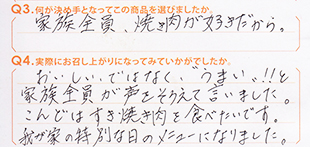 Q3.何が決め手となってこの商品を選びましたか。
家族全員、焼き肉が好きだから。
Q4.実際にお召し上がりになってみていかがでしたか。
おいしい、ではなく、うまい、!!と
家族全員が声をそろえて言いました。
こんどはすき焼き肉を食べたいです。
我が家の特別な日のメニューになりました。